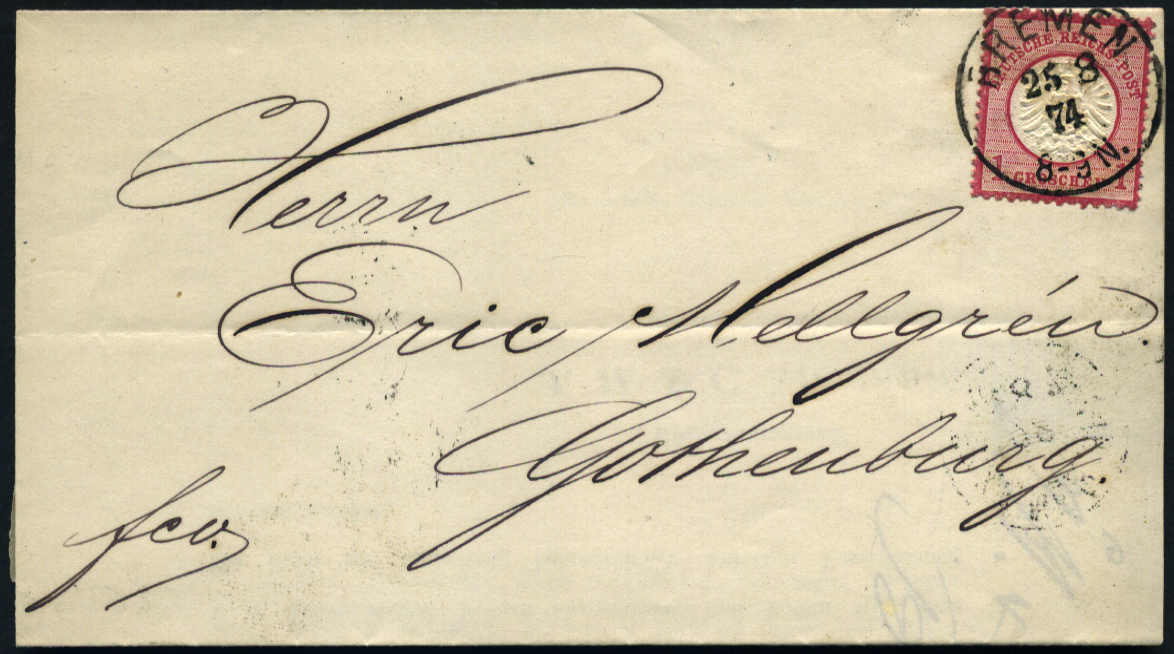 BREMEN
25 8
74
8-9 N.
DEUTSCHE REICHS-POST
1 GROSCHEN 1
Herrn
Eric Hellgrén.
Gothenburg.
fco.